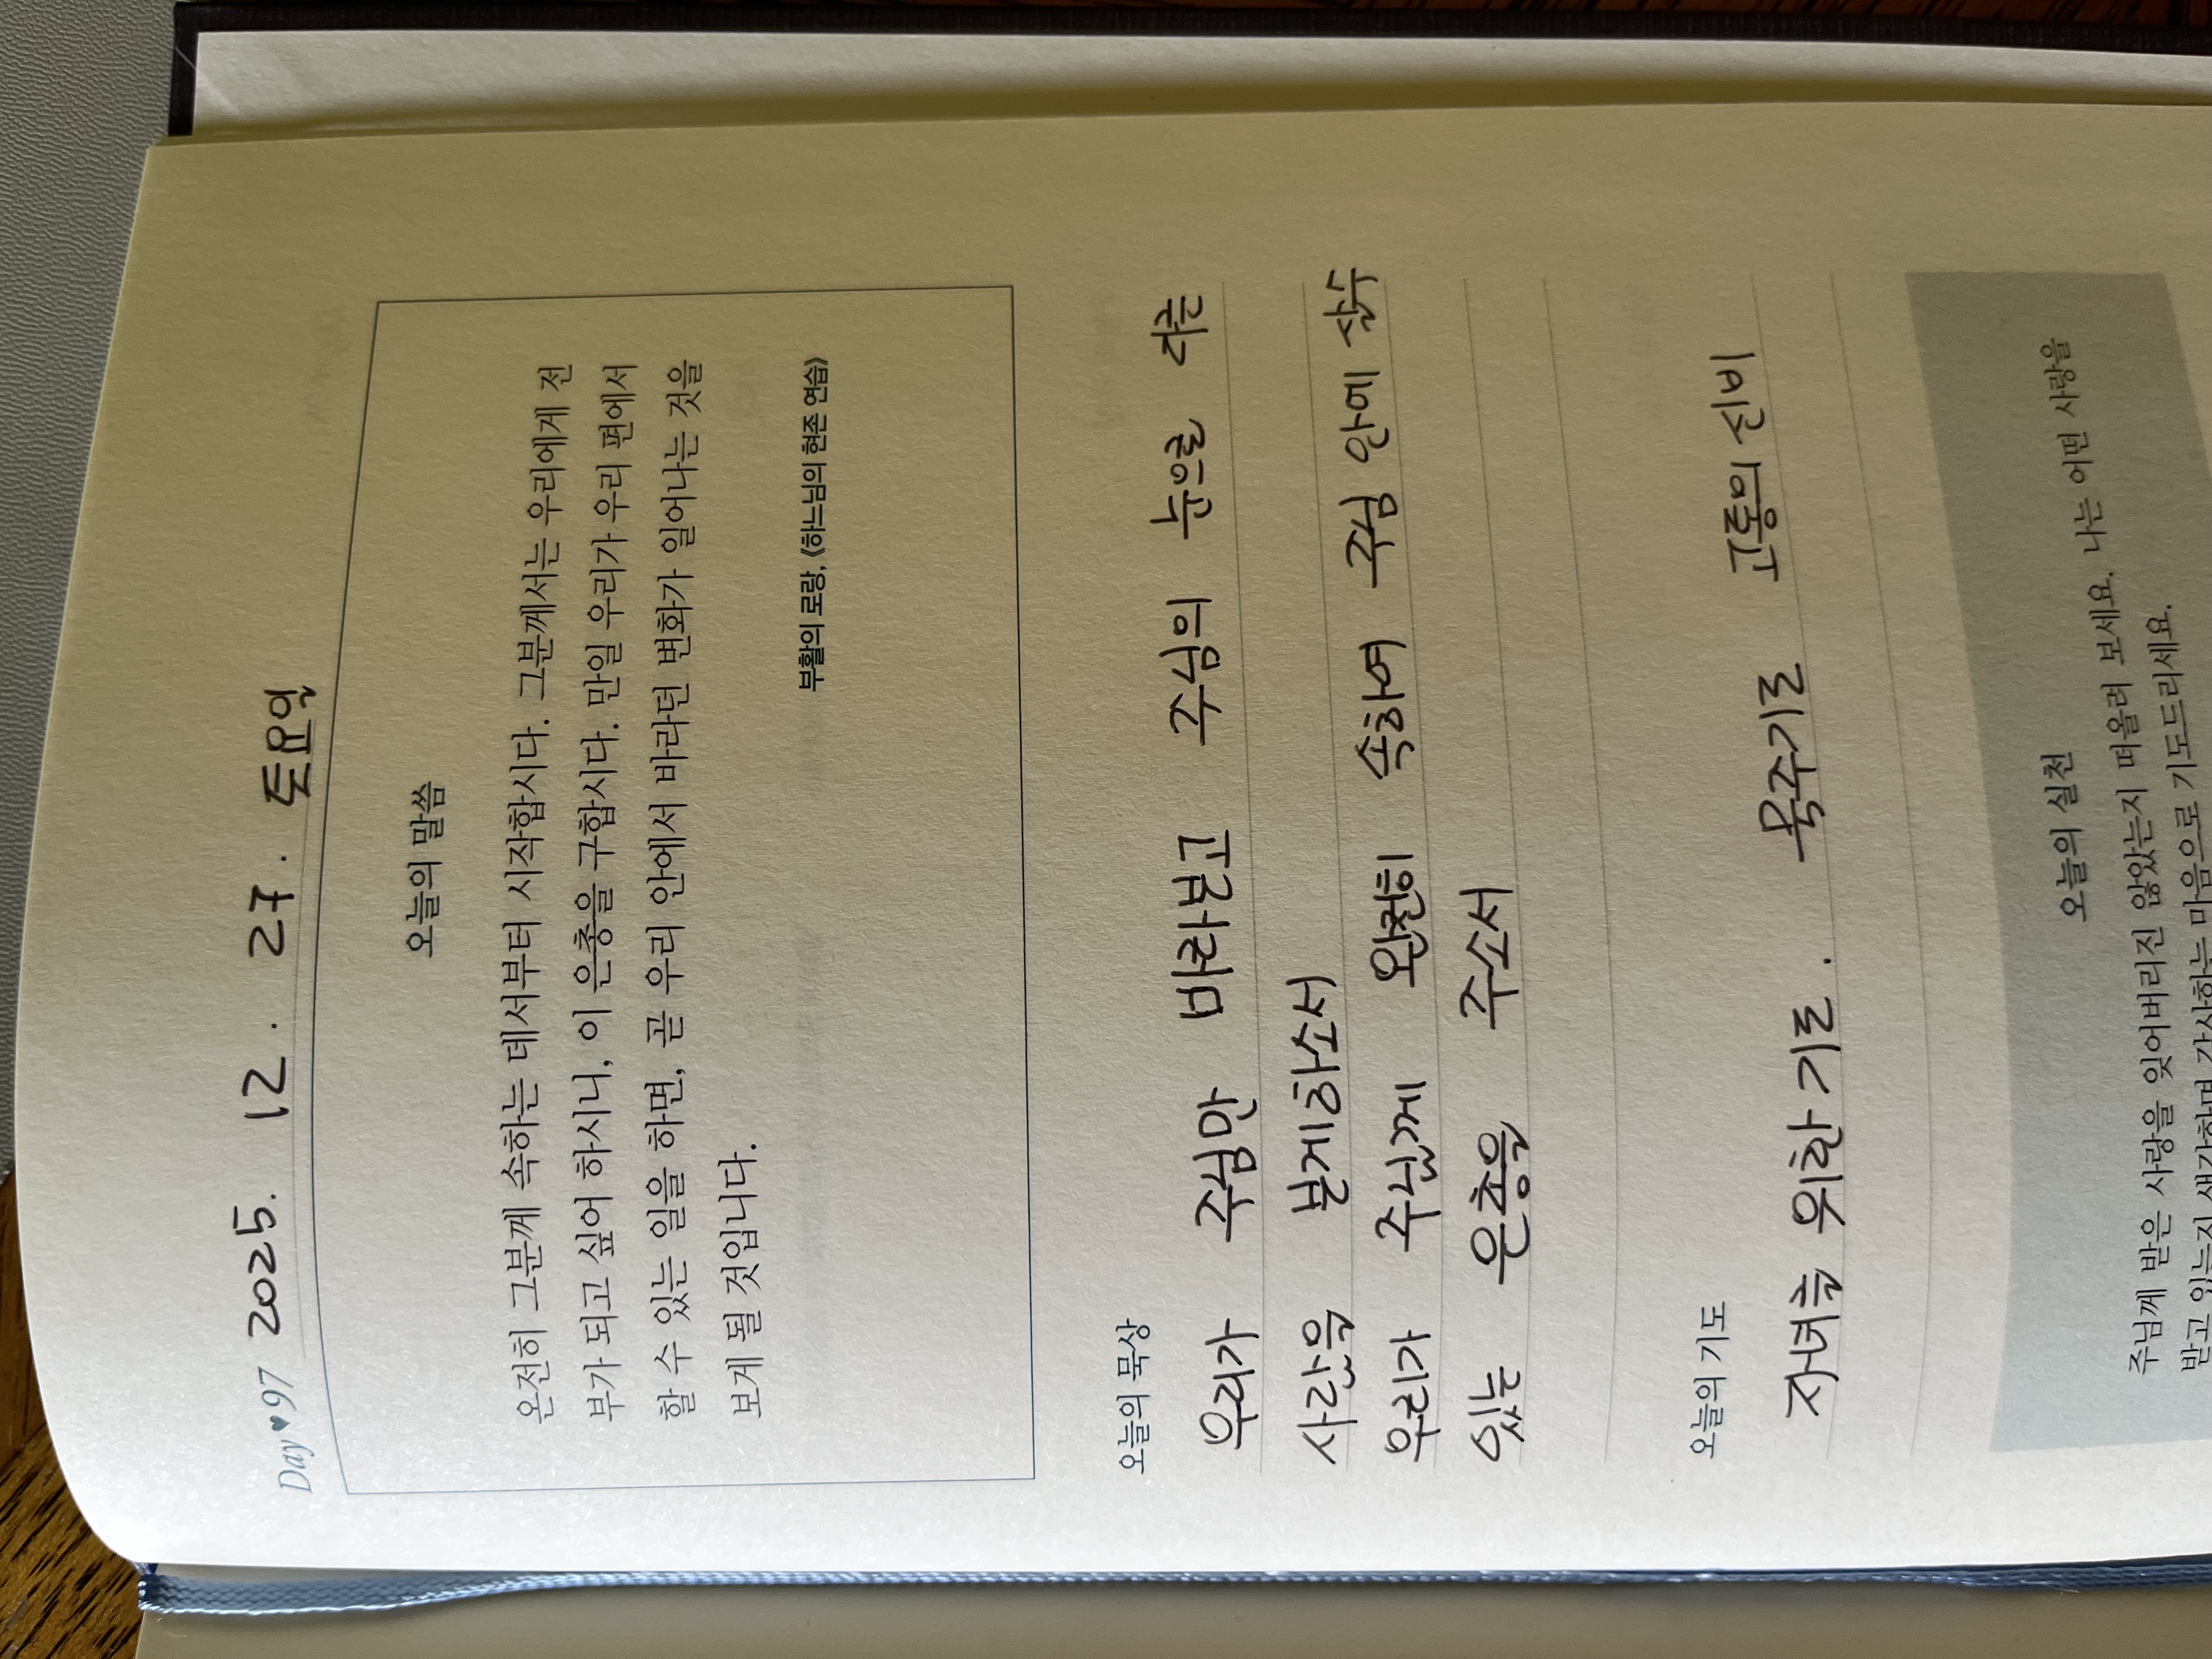 Day♥97 2025. 12. 27. 토요일
오늘의 말씀
온전히 그분께 속하는 데서부터 시작합시다. 그분께서는 우리에게 전
부가 되고 싶어 하시니, 이 은총을 구합시다. 만일 우리가 우리 편에서
할 수 있는 일을 하면, 곧 우리 안에서 바라던 변화가 일어나는 것을
보게 될 것입니다.
부활의 로랑, 《하느님의 현존 연습》
오늘의 묵상
우리가 주님만 바라보고 주님의 눈으로 다른
사람을 보게하소서
우리가 주님께 완전히 속하여 주님 안에 살수
있는 은총을 주소서
오늘의 기도
자녀를 위한 기도. 묵주기도 고통의 신비
오늘의 실천
주님께 받은 사랑을 잊어버리진 않았는지 떠올려 보세요. 나는 어떤 사랑을
받고 있는지 생각하며 감사하는 마음으로 기도드리세요.